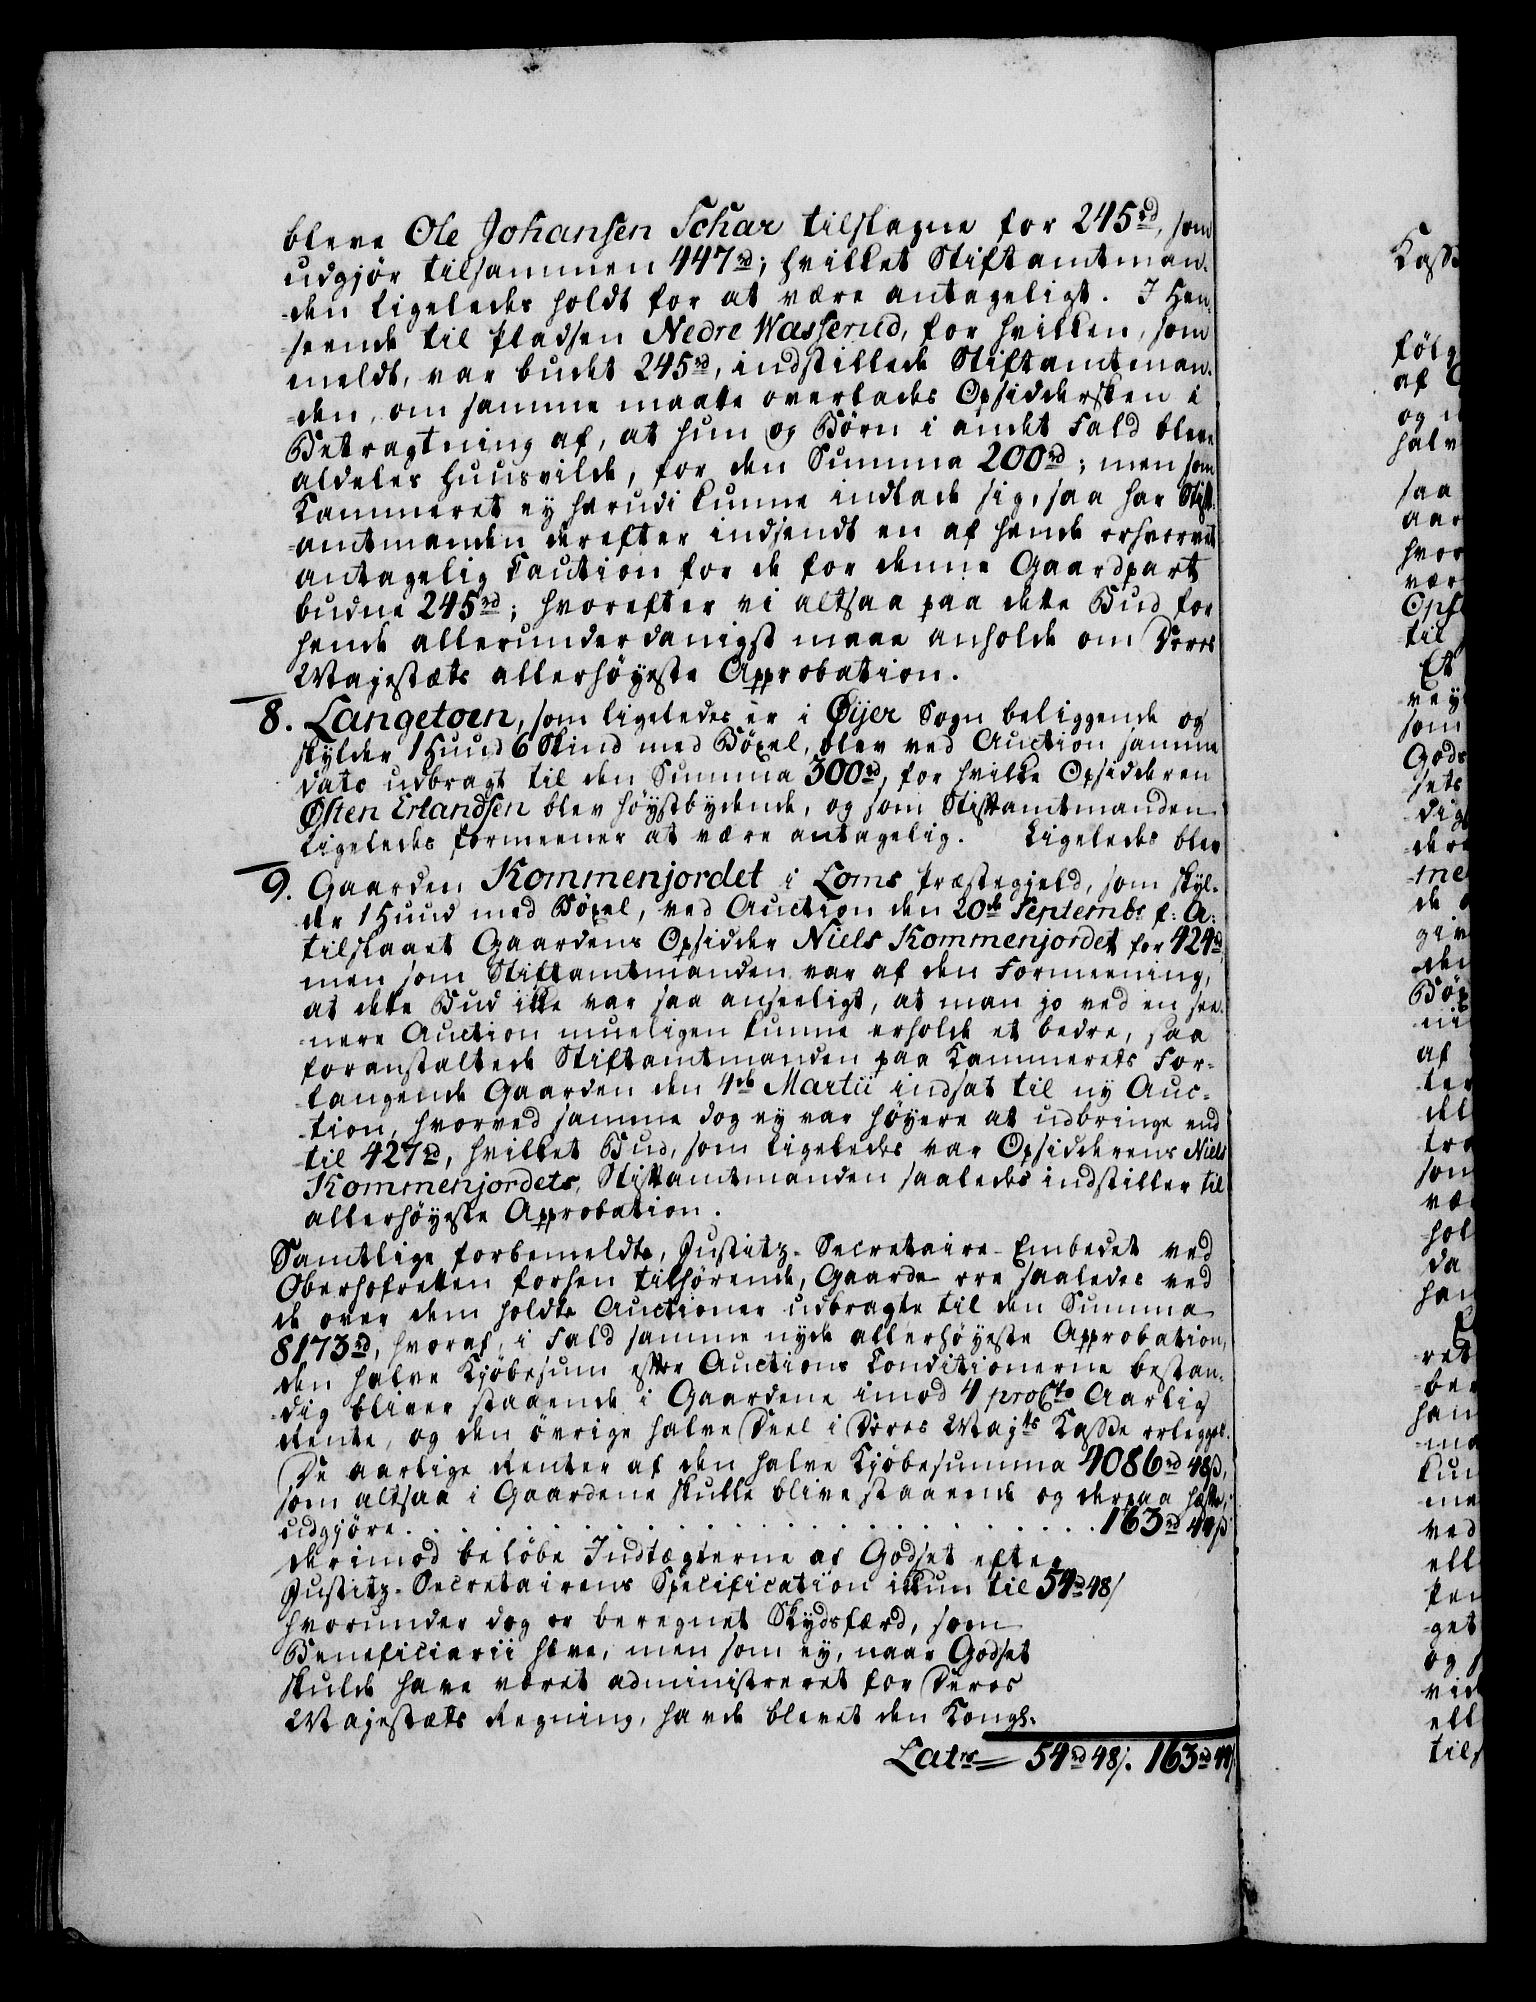 bleve Ole Johansen Schar tilslagne for 245rd, som
udgiör tilsammen 447rd; hvilket Stiftamtman-
-den ligeledes holdt for at være antageligt. I Hen-
seende til Pladsen Nedre Wasserud, for hvilken, som
meldt, var budet 245rd, indstillede Stiftamtman-
-den, om samme maatte overlades Opsiddersken i
Betragtning af, at hun og Börn i andet Fald bleve
aldeles huusvilde, for den Summa 200rd; men som
Kammeret ey herudi kunne indlade sig, saa har Stift-
-amtmanden derefter indsendt en af hende erhvervet
antagelig Caution for de for denne Gaardpart
budne 245rd; hvorefter vi altsaa paa dette Bud for
hende allerunderdanigst maae anholde om Deres
Majestæts allerhöyeste Approbation.
8. Langetoen, som ligeledes er i Øijer Sogn beliggende og
skylder 1 Huud 6 Skind med Böxel, blev ved Auction samme
dato udbragt til den Summa 300rd, for hvilke Opsidderen
Østen Erlandsen blev höystbydende, og som Stiftamtmanden
ligeledes formeener at være antagelig. Ligeledes blev
9. Gaarden Kommenjordet i Loms Præstegield, som skyl-
der 1 Huud med Böxel, ved Auction den 20de Septembr f: A:
tilslaaet Gaardens Opsidder Niels Kommenjordet for 424rd,
men som Stiftamtmanden var af den Formeening,
at dette Bud ikke var saa anseeligt, at man jo ved en see-
nere Auction mueligen kunne erholde et bedre, saa
foranstaltede Stiftamtmanden paa Kammerets For-
langende Gaarden den 4de Martii indsat til ny Auc-
-tion, hvorved samme dog ey var höyere at udbringe end
til 427rd, hvilket Bud, som ligeledes var Opsidderens Niels
Kommenjordets, Stiftamtmanden saaledes indstiller til
allerhöyeste Approbation.
Samtlige forbemeldte, Justitz-Secretaire-Embedet ved
Oberhofretten forhen tilhörende, Gaarde ere saaledes ved
de over dem holdte Auctioner udbragte til den Summa
8173rd, hvoraf, i Fald samme nyde allerhöyeste Approbation,
den halve Kiöbesum efter Auctions Conditionerne bestan-
-dig bliver staaende i Gaardene imod 4 proCto Aarlig
Rente, og den övrige halve Deel i Deres Majts Kasse erlegges.
De aarlige Renter af den halve Kiöbesumma 4086rd 48ß,
som altsaa i Gaardene skulle blive staaende og derpaa hæfte,
udgiöre . . . . . . . . . . . . . . . . . . . . 163rd 44ß
derimod belöbe Indtægterne af Godset efter
Justitz-Secretairens Specification ikkun til 54rd 48ß
hvorunder dog er beregnet Skydsfærd, som
Beneficiarii have, men som ey, naar Godset
skulde have været administreret for Deres
Majestæts Regning, havde blevet den Kongl.
Latrs 54rd 48ß. 163rd 44ß.